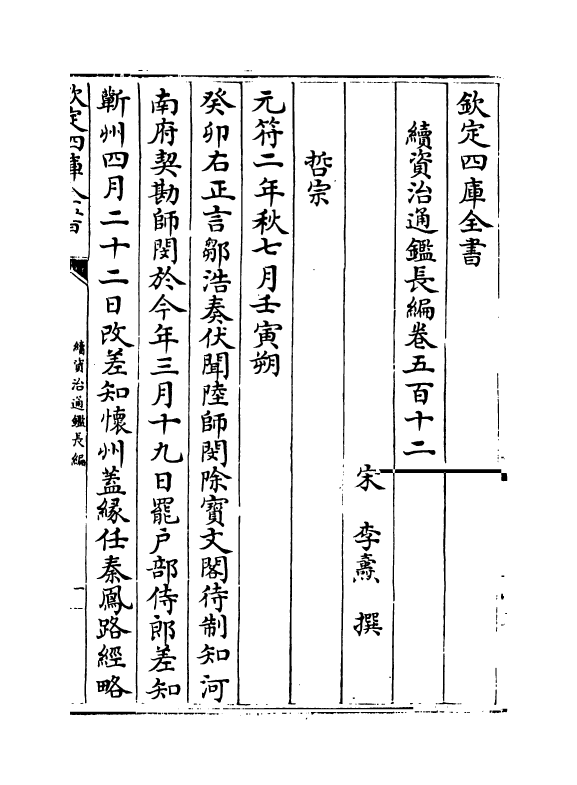 欽定四庫全書
續資治通鑑長編卷五百十二
宋 李燾 撰
哲宗
元符二年秋七月壬寅朔
癸卯右正言鄒浩奏伏聞陸師閔除寶文閣待制知河
南府契勘師閔於今年三月十九日罷户部侍郎差知
蘄州四月二十二日改差知懷州蓋緣任秦鳳路經略
欽定四庫全書
續資治通鑑長編
一